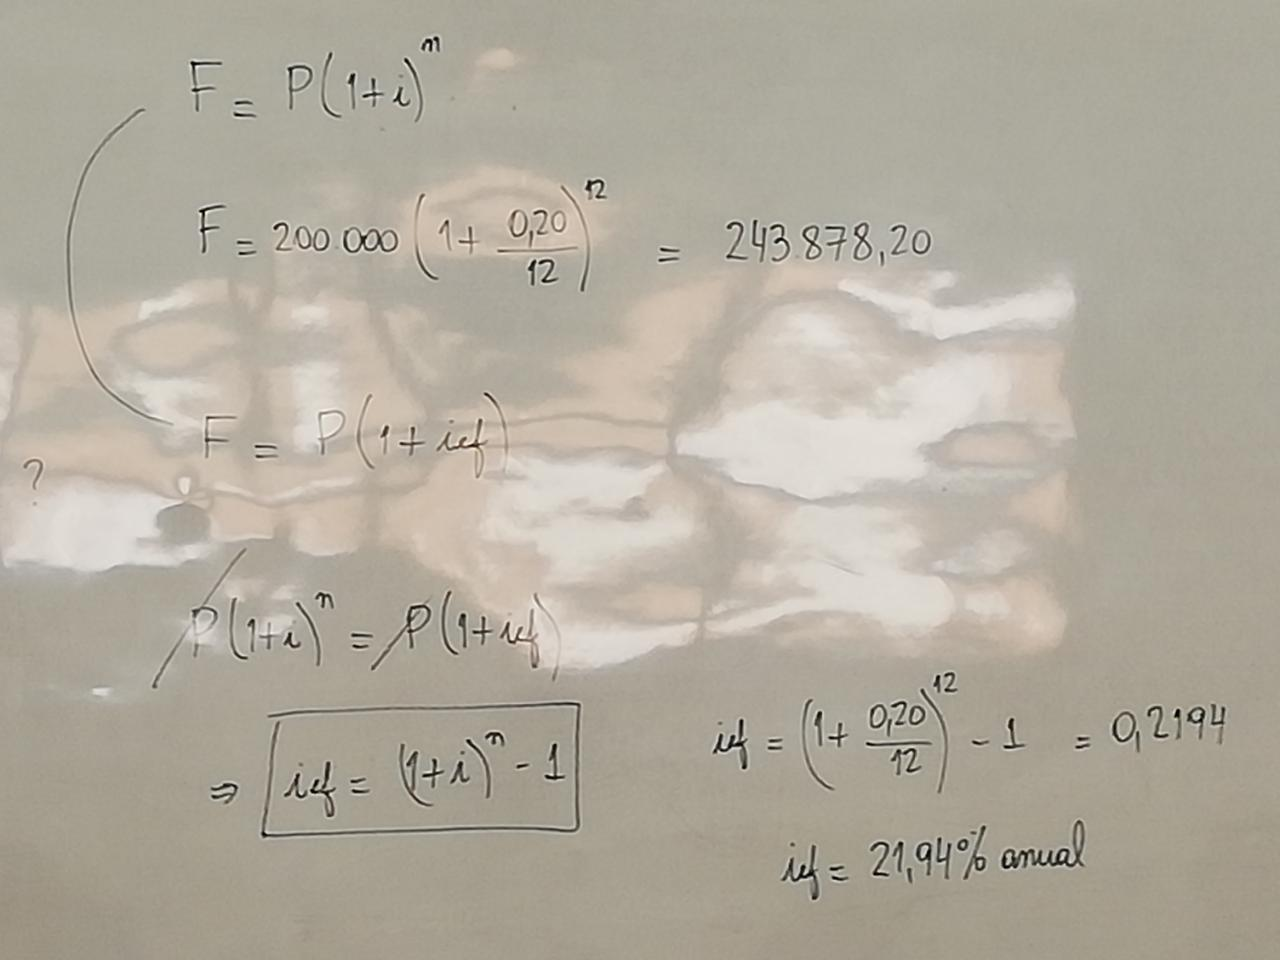 F = P(1+i)^n
F = 200.000 (1 + 0,20/12)^12 = 243.878,20
F = P(1 + ief)
?
P(1+i)^n = P(1+ief)
⇒ ief = (1+i)^n - 1
ief = (1 + 0,20/12)^12 - 1 = 0,2194
ief = 21,94% anual